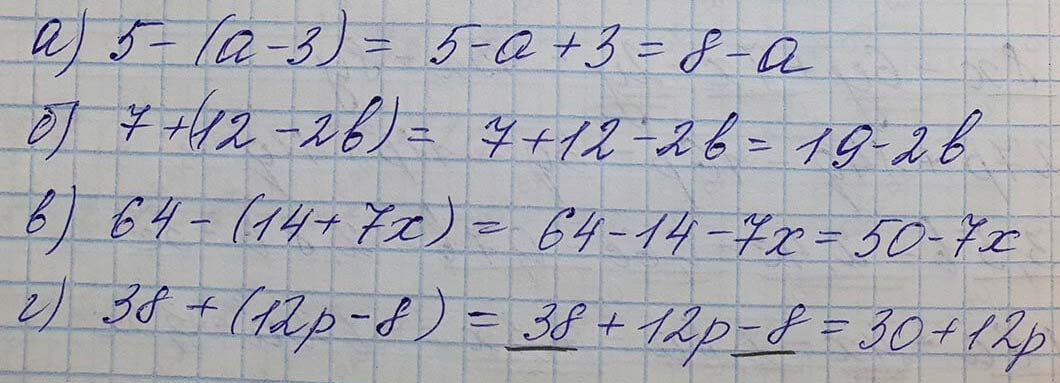 а) 5 - (a - 3) = 5 - a + 3 = 8 - a
б) 7 + (12 - 2b) = 7 + 12 - 2b = 19 - 2b
в) 64 - (14 + 7x) = 64 - 14 - 7x = 50 - 7x
г) 38 + (12p - 8) = 38 + 12p - 8 = 30 + 12p